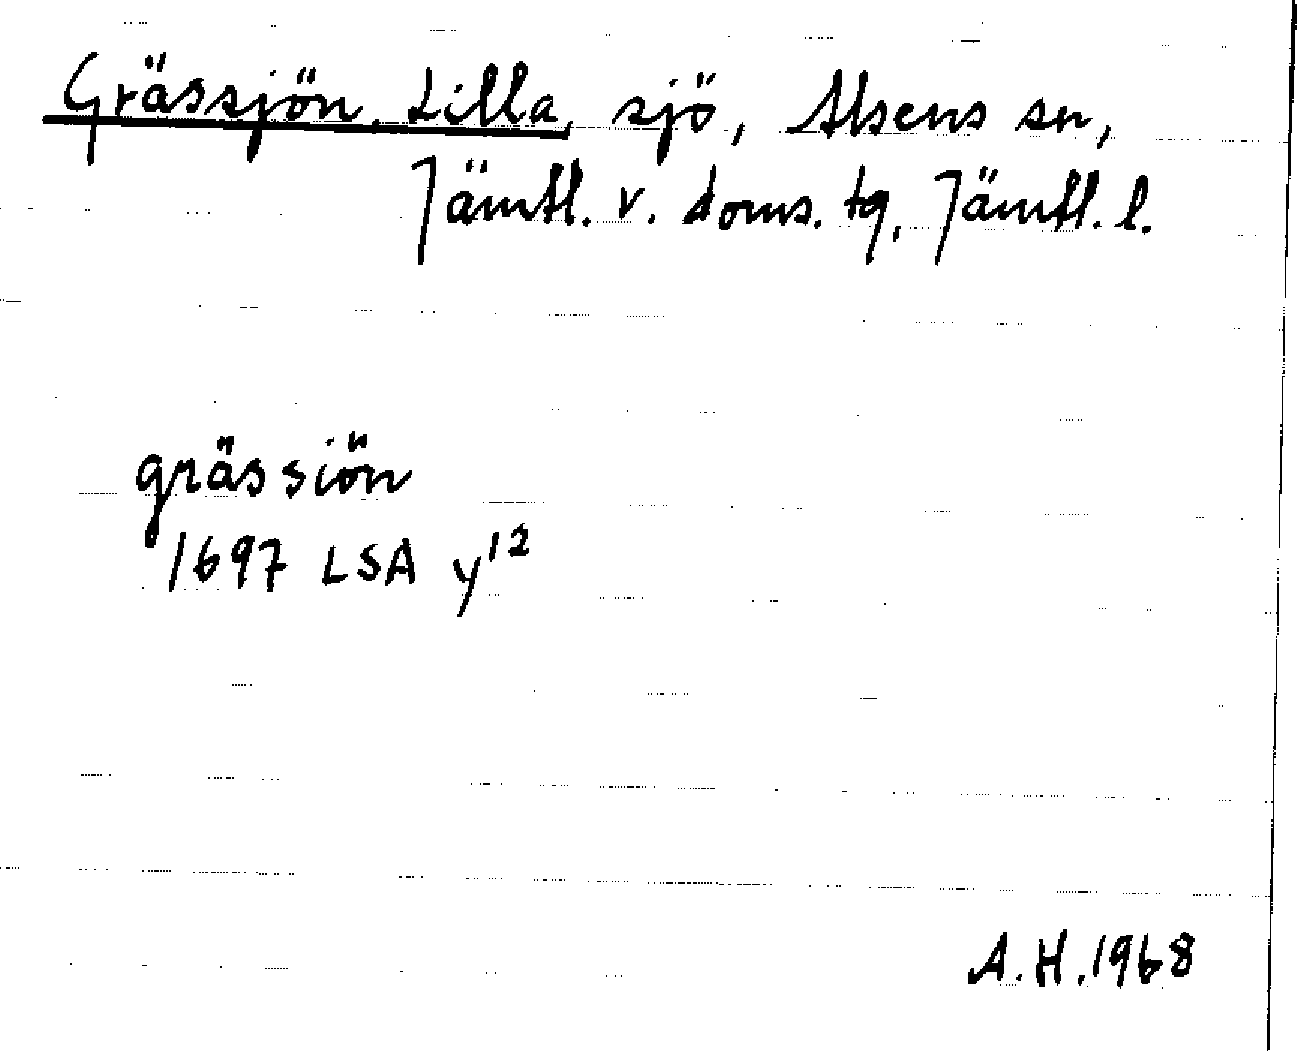 Grässjön, Lilla, sjö, Alsens sn,
Jämtl. v. doms. tg, Jämtl. l.
grässiön
1697 LSA y12
A.H.1968